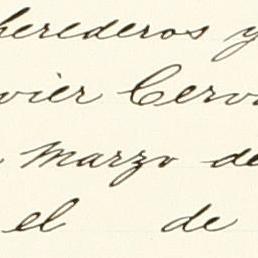 herederos y
vier Cerv
Marzo de
el de